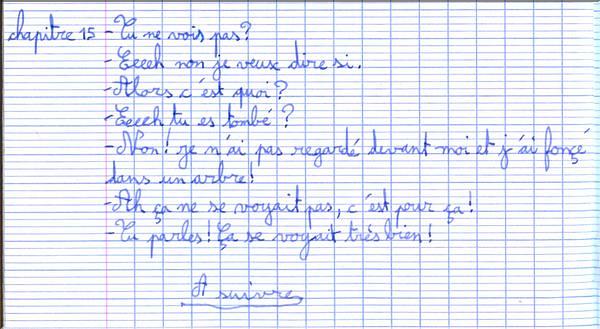 chapitre 15 - Tu ne vois pas?
- Eeeeh non je veux dire si.
- Alors c'est quoi?
- Eeeeh tu es tombé?
- Non! je n'ai pas regardé devant moi et j'ai fonçé
dans un arbre!
- Ah ça ne se voyait pas, c'est pour ça!
- Tu parles! Ça se voyait très bien!
A suivre